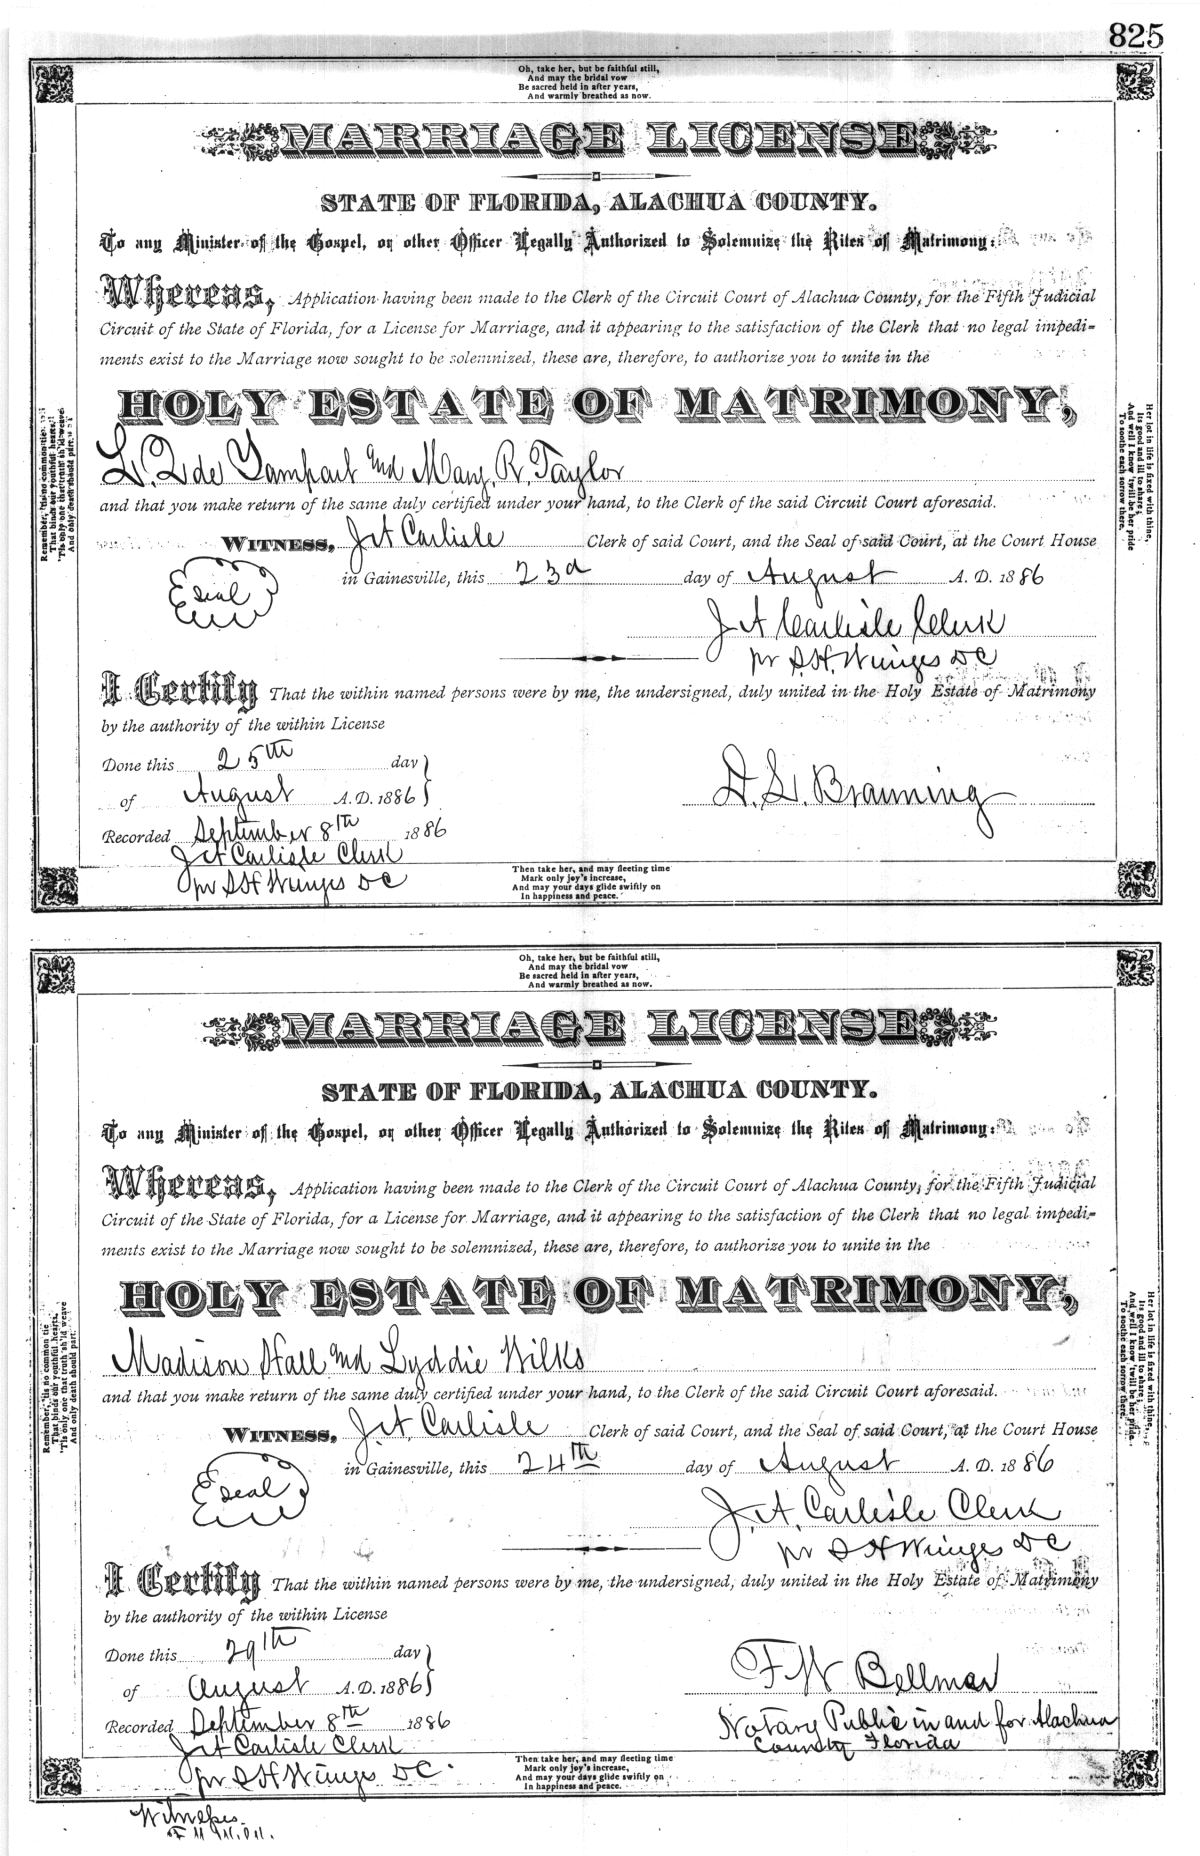 825
Oh, take her, but be faithful still,
And may the bridal vow
Be sacred held in after years,
And warmly breathed as now.
MARRIAGE LICENSE
STATE OF FLORIDA, ALACHUA COUNTY.
To any Minister of the Gospel, or other Officer Legally Authorized to Solemnize the Rites of Matrimony:
Whereas, Application having been made to the Clerk of the Circuit Court of Alachua County, for the Fifth Judicial
Circuit of the State of Florida, for a License for Marriage, and it appearing to the satisfaction of the Clerk that no legal impedi-
ments exist to the Marriage now sought to be solemnized, these are, therefore, to authorize you to unite in the
HOLY ESTATE OF MATRIMONY,
L. Q de Yampart and Mary. R. Taylor
and that you make return of the same duly certified under your hand, to the Clerk of the said Circuit Court aforesaid.
WITNESS, J A Carlisle Clerk of said Court, and the Seal of said Court, at the Court House
Seal
in Gainesville, this 23d day of August A. D. 1886
J A Carlisle Clerk
pr S. H. Wienges DC
I Certify That the within named persons were by me, the undersigned, duly united in the Holy Estate of Matrimony
by the authority of the within License
Done this 25th day
of August A.D. 1886
D. L. Branning
Recorded September 8th 1886
J A Carlisle Clerk
pr S H Wienges DC
Then take her, and may fleeting time
Mark only joy's increase,
And may your days glide swiftly on
In happiness and peace.
Remember, 'tis no common tie
That binds our youthful hearts,
'Tis only one that truth sh'ld weave
And only death should part.
Her lot in life is fixed with thine,
Its good and ill to share;
And well I know 'twill be her pride
To soothe each sorrow there.
Oh, take her, but be faithful still,
And may the bridal vow
Be sacred held in after years,
And warmly breathed as now.
MARRIAGE LICENSE
STATE OF FLORIDA, ALACHUA COUNTY.
To any Minister of the Gospel, or other Officer Legally Authorized to Solemnize the Rites of Matrimony:
Whereas, Application having been made to the Clerk of the Circuit Court of Alachua County, for the Fifth Judicial
Circuit of the State of Florida, for a License for Marriage, and it appearing to the satisfaction of the Clerk that no legal impedi-
ments exist to the Marriage now sought to be solemnized, these are, therefore, to authorize you to unite in the
HOLY ESTATE OF MATRIMONY,
Madison Hall and Lyddie Wilks
and that you make return of the same duly certified under your hand, to the Clerk of the said Circuit Court aforesaid.
WITNESS, J. A. Carlisle Clerk of said Court, and the Seal of said Court, at the Court House
Seal
in Gainesville, this 24th day of August A. D. 1886
J. A. Carlisle Clerk
pr S H Wienges DC
I Certify That the within named persons were by me, the undersigned, duly united in the Holy Estate of Matrimony
by the authority of the within License
Done this 29th day
of August A.D. 1886
F W Bellmar
Recorded September 8th 1886
Notary Public in and for Alachua
County Florida
J A Carlisle Clerk
pr S H Wienges DC.
Then take her, and may fleeting time
Mark only joy's increase,
And may your days glide swiftly on
In happiness and peace.
Remember, 'tis no common tie
That binds our youthful hearts,
'Tis only one that truth sh'ld weave
And only death should part.
Her lot in life is fixed with thine,
Its good and ill to share;
And well I know 'twill be her pride
To soothe each sorrow there.
Witnesses.